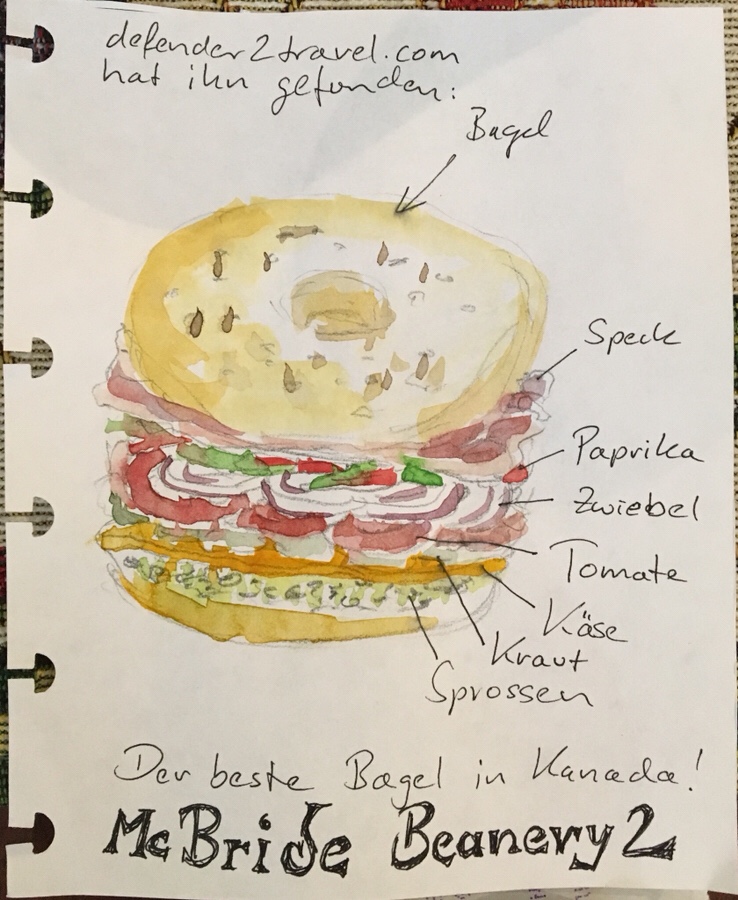 defender2travel.com
hat ihn gefunden:
Bagel
Speck
Paprika
Zwiebel
Tomate
Käse
Kraut
Sprossen
Der beste Bagel in Kanada!
McBride Beanery 2